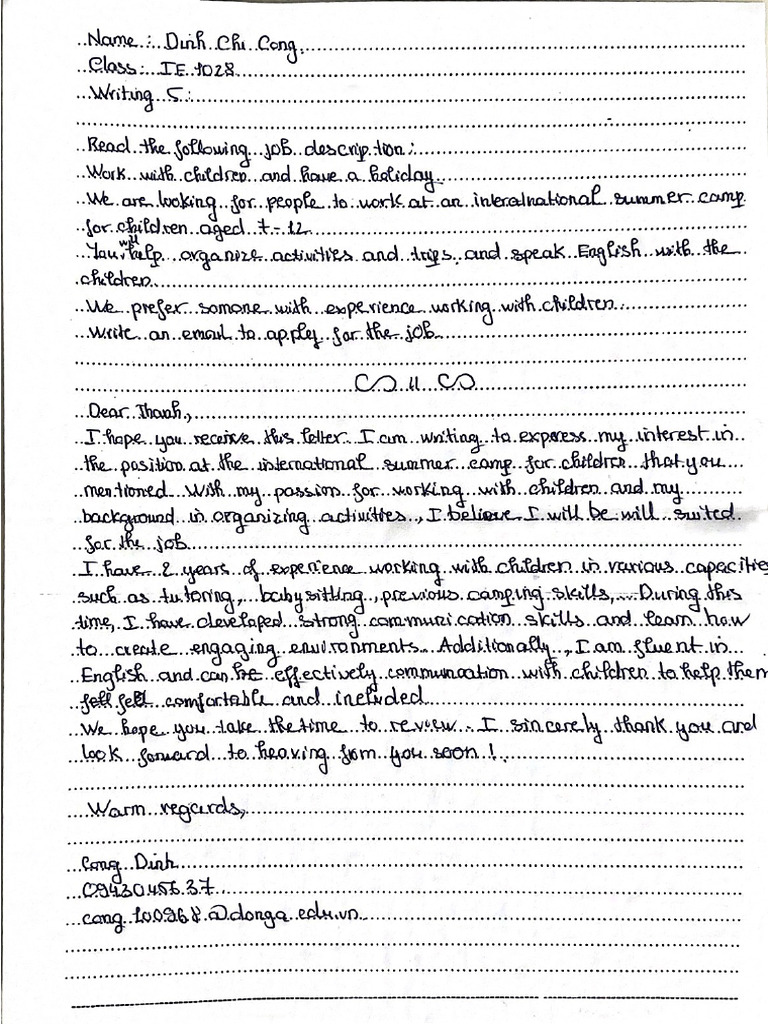 Name: Dinh Chi Cong
Class: IE 1028
Writing 5:
Read the following job description:
Work with children and have a holiday
We are looking for people to work at an interalnational summer camp
for children aged 7-12
You will help organize activities and trips and speak English with the
children
We prefer somone with experience working with children
Write an email to apply for the job
Dear Thanh,
I hope you receive this letter. I am writing to experess my interest in
the position at the international summer camp for children that you
mentioned. With my passion for working with children and my
background in organizing activities, I believe I will be will suited
for the job
I have 2 years of experience working with children in various capacities
such as tutoring, babysitting, previous camping skills,... During this
time, I have developed strong communication skills and learn how
to create engaging environments. Additionally, I am fluent in
English and can be effectively communcation with children to help them
felt comfortable and included
We hope you take the time to review. I sincerely thank you and
look forward to heaving from you soon!
Warm regards,
Cong Dinh
cong100968@donga.edu.vn